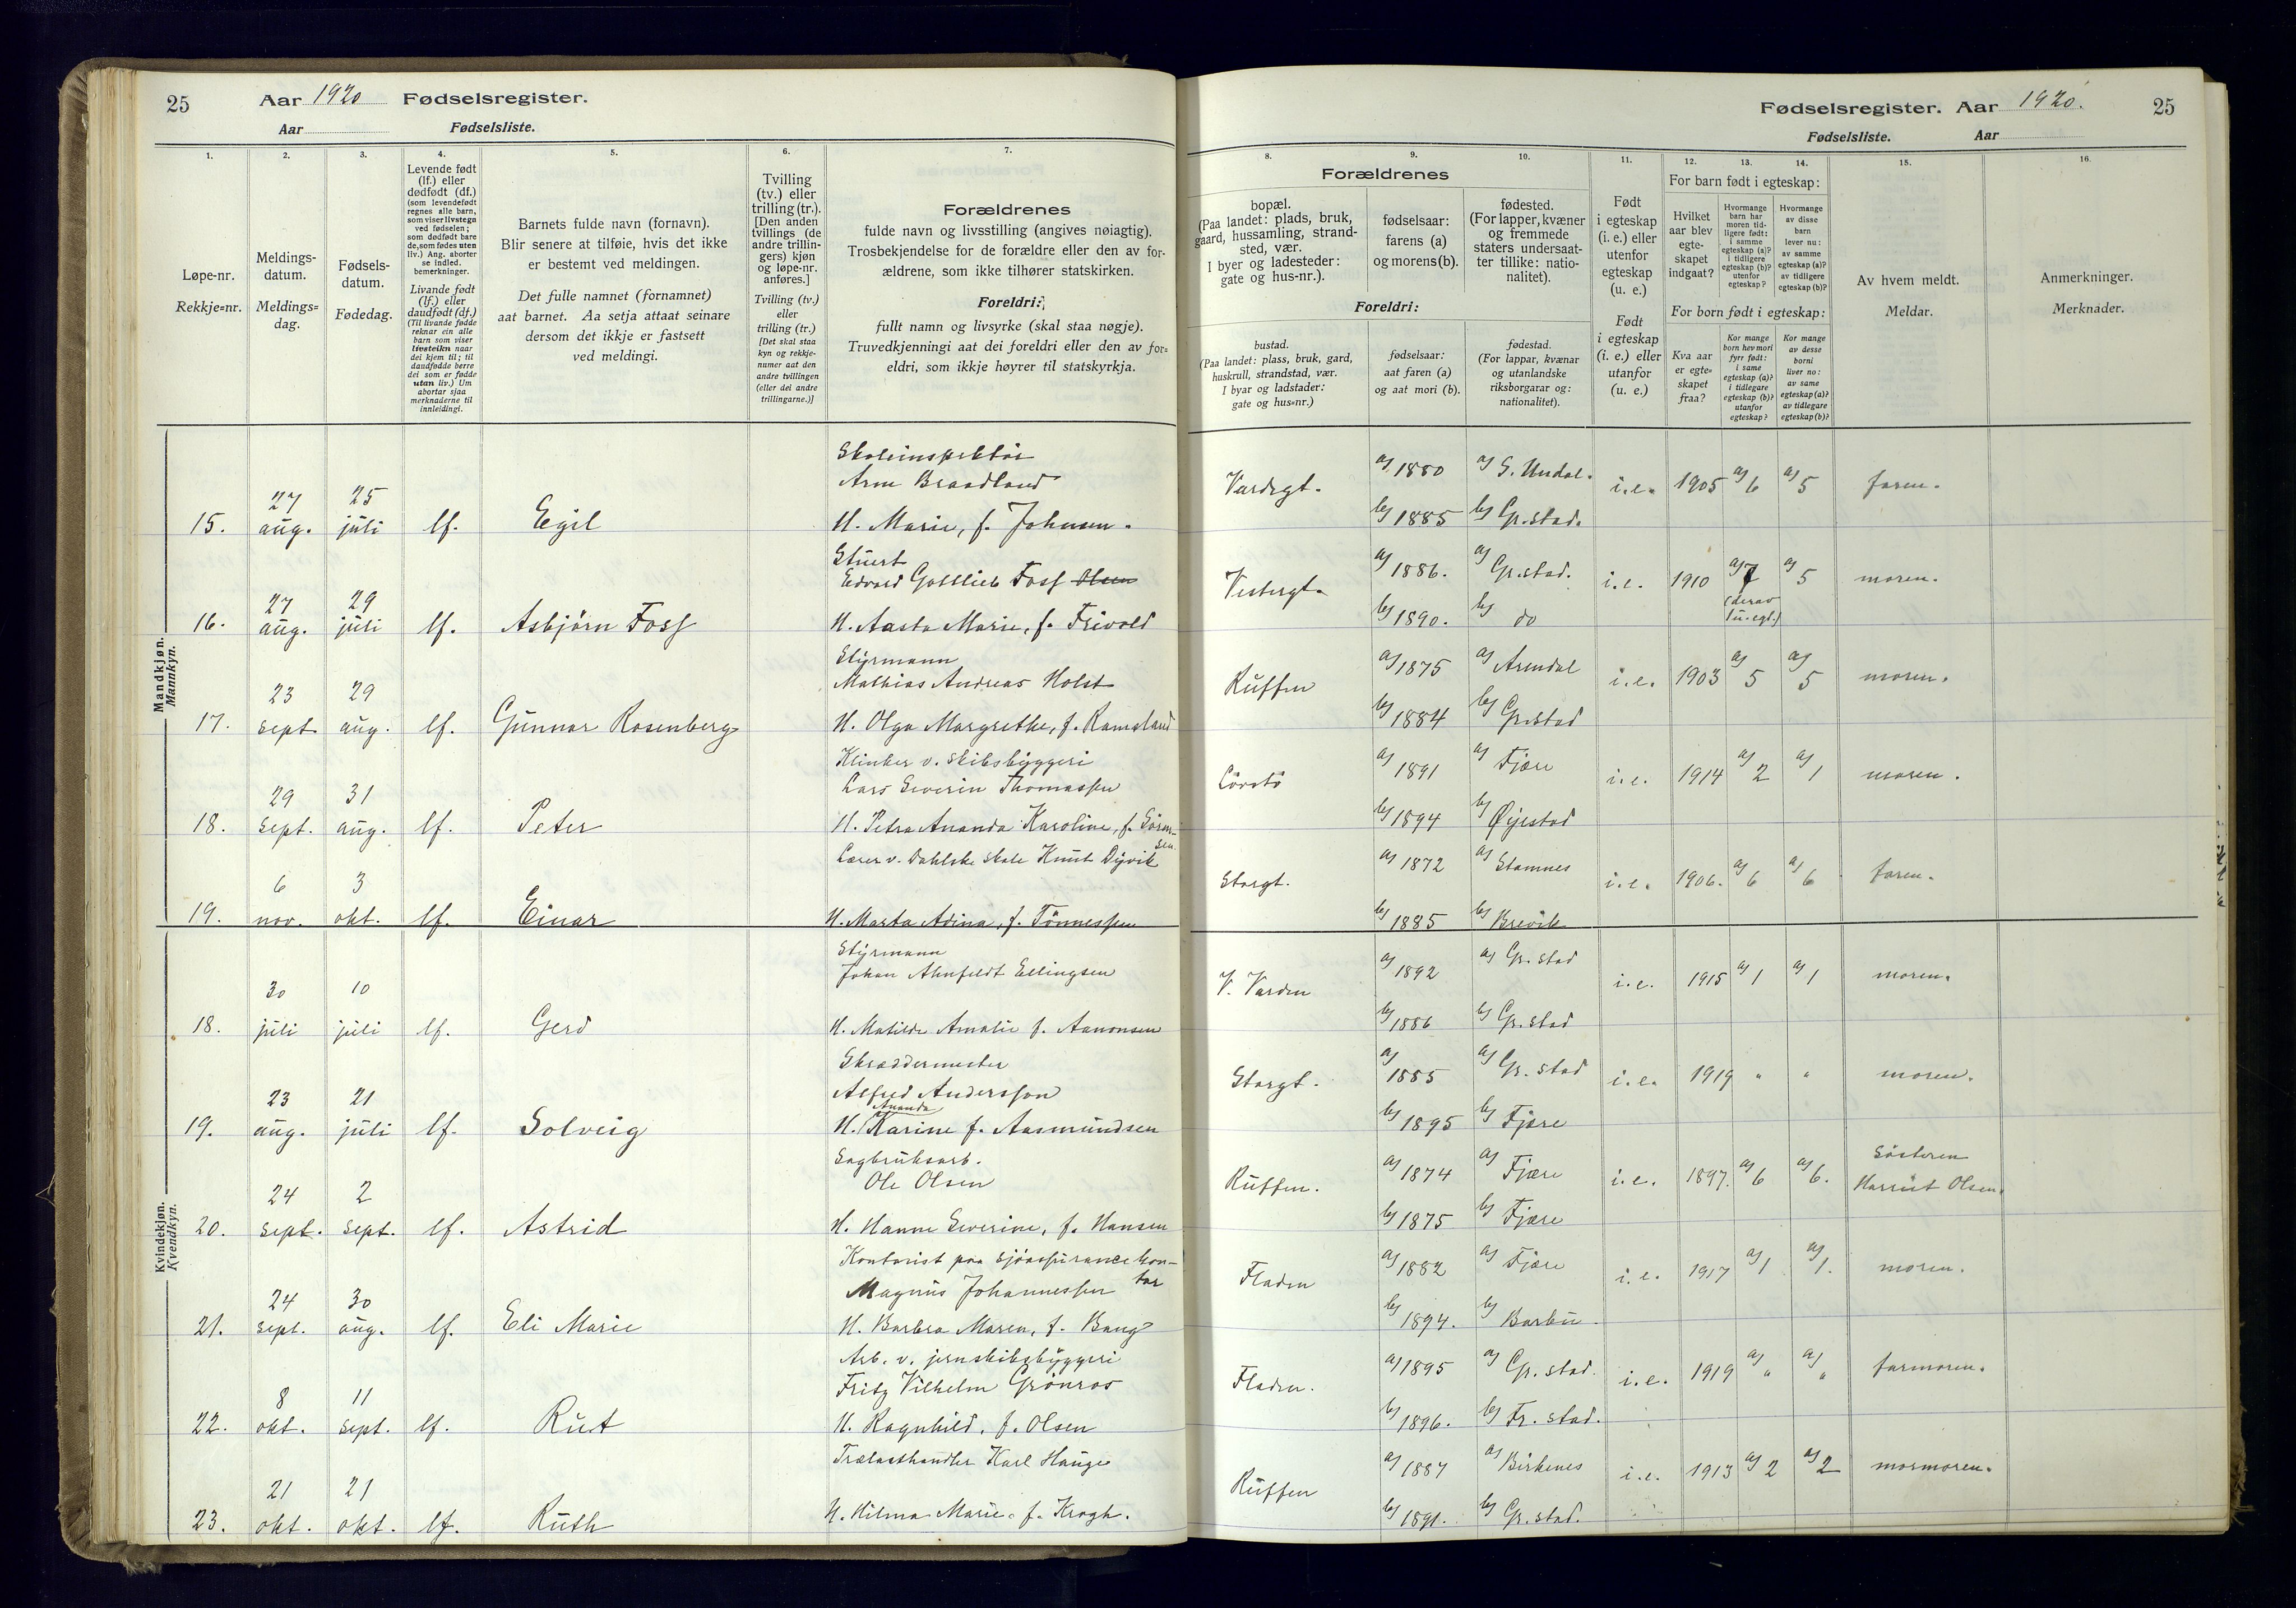 25 Aar 1920 Fødselsregister.
Aar Fødselsliste.
1. 2. 3. 4. 5. 6. 7.
Løpe-nr.
Rekkje=nr.
Meldings-
datum.
Meldings=
dag.
Fødsels-
datum.
Fødedag.
Levende født
(lf.) eller
dødfødt (df.)
(som levendefødt
regnes alle barn,
som viser livstegn
ved fødselen;
som dødfødt bare
de, som fødes uten
liv.) Ang. aborter
se indled.
bemerkninger.
Livande født
(lf.) eller
daudfødt (df.)
(Til livande fødde
reknar ein alle
barn som viser
livsteikn naar
dei kjem til; til
daudfødde berre
dei som er fødde
utan liv.) Um
abortar sjaa
merknaderne til
innleidingi.
Barnets fulde navn (fornavn).
Blir senere at tilføie, hvis det ikke
er bestemt ved meldingen.
Det fulle namnet (fornamnet)
aat barnet. Aa setja attaat seinare
dersom det ikkje er fastsett
ved meldingi.
Tvilling
(tv.) eller
trilling (tr.).
[Den anden
tvillings (de
andre trillin-
gers) kjøn
og løpe-nr.
anføres.]
Tvilling (tv.)
eller
trilling (tr.)
[Det skal staa
kyn og rekkje-
numer aat den
andre tvillingen
(eller dei andre
trillingarne.)]
Forældrenes
fulde navn og livsstilling (angives nøiagtig).
Trosbekjendelse for de forældre eller den av for-
ældrene, som ikke tilhører statskirken.
Foreldri:
fullt namn og livsyrke (skal staa nøgje).
Truvedkjenningi aat dei foreldri eller den av for=
eldri, som ikkje høyrer til statskyrkja.
Mandkjøn.
Mannkyn.
Skoleinspektør
Arne Braadland
15. 27 aug. 25 juli lf. Egil H. Marie, f. Johnsen.
Stuert
Edvard Gottlieb Foss Olsen
16. 27 aug. 29 juli lf. Asbjørn Foss H. Aasta Marie, f. Frivold
Styrmann
Mathias Andreas Holst
17. 23 sept. 29 aug. lf. Gunnar Rosenberg H. Olga Margrethe, f. Ramsland
Klinker v. skibsbyggeri
Lars Severin Thomassen
18. 29 sept. 31 aug. lf. Peter H. Petra Ananda Karoline, f. Sören-
sen.
Lærer v. Dahlske skole Knut Dyvik
19. 6 nov. 3 okt. lf. Einar H. Marta Adina, f. Tönnessen
Kvindekjøn.
Kvendkyn.
Styrmann
Johan Ahnfeldt Ellingsen
18. 30 juli 10 juli lf. Gerd H. Matilde Amalie f. Aanonsen
Skræddermester
Alfred Andersson
Ananda
19. 23 aug. 21 juli lf. Solveig H. Karine f. Aasmundsen
Sagbruksarb.
Ole Olsen
20. 24 sept. 2 sept. lf. Astrid H. Hanne Severine, f. Hansen
Kontorist paa sjöassurancekon-
tor
Magnus Johannessen
21. 24 sept. 30 aug. lf. Eli Marie H. Barbra Maren, f. Bang
Arb. v. jernskibsbyggeri
Fritz Vilhelm Grönros
22. 8 okt. 11 sept. lf. Rut H. Ragnhild, f. Olsen
Trælasthandler Karl Hauge
23. 21 okt. 21 okt. lf. Ruth H. Hilma Marie, f. Krogh.
Fødselsregister. Aar 1920. 25
Fødselsliste. Aar
8. 9. 10. 11. 12. 13. 14. 15. 16.
Forældrenes
bopæl.
(Paa landet: plads, bruk,
gaard, hussamling, strand-
sted, vær.
I byer og ladesteder:
gate og hus-nr.).
fødselsaar:
farens (a)
og morens (b).
fødested.
(For lapper, kvæner
og fremmede
staters undersaat-
ter tillike: natio-
nalitet).
Foreldri:
bustad.
(Paa landet: plass, bruk, gard,
huskrull, strandstad, vær.
I byar og ladstader:
gate og hus=nr.)
fødselsaar:
aat faren (a)
og aat mori (b).
fødestad.
(For lappar, kvænar
og utanlandske
riksborgarar og:
nationalitet).
Født
i egteskap
(i. e.) eller
utenfor
egteskap
(u. e.)
Født
i egteskap
(i. e.) eller
utanfor
(u. e.)
For barn født i egteskap:
Hvilket
aar blev
egte-
skapet
indgaat?
Hvormange
barn har
moren tid-
ligere født:
i samme
egteskap (a)?
i tidligere
egteskap (b)?
utenfor
egteskap?
Hvormange
av disse
barn
lever nu:
av samme
egteskap (a)?
av tidligere
egteskap (b)?
For born født i egteskap:
Kva aar
er egte=
skapet
fraa?
Kor mange
born hev mori
fyrr født:
i same
egteskap (a)?
i tidlegare
egteskap (b)?
utanfor
egteskap?
Kor mange
av desse
borni
liver no:
av same
egteskap (a)?
av tidlegare
egteskap (b)?
Av hvem meldt.
Meldar.
Anmerkninger.
Merknader.
Vardegt. a) 1880 a) S. Undal. i.e. 1905 a) 6 a) 5 faren.
b) 1885 b) Gr.stad.
Vestergt. a) 1886. a) Gr.stad. i.e. 1910 a) 7 a) 5 moren.
(derav
1 u. egt.)
b) 1890. b) do
Ruffen a) 1875 a) Arendal i.e. 1903 a) 5 a) 5 moren.
b) 1884 b) Gr.stad
a) 1891 a) Fjære i.e. 1914 a) 2 a) 1 moren.
b) 1894 b) Øyestad
Storgt. a) 1872 a) Stamnes i.e. 1906. a) 6 a) 6 faren.
b) 1885 b) Brevik
V. Varden a) 1892 a) Gr.stad i.e. 1915 a) 1 a) 1 moren.
b) 1886 b) Gr.stad
Storgt. a) 1885 a) Gr.stad i.e. 1919 " " moren.
b) 1895 b) Fjære
Ruffen. a) 1874 a) Fjære i.e. 1897. a) 6 a) 6. Søsteren
Harriet Olsen.
b) 1875 b) Fjære
Fladen a) 1882 a) Fjære i.e. 1917 a) 1 a) 1. moren.
b) 1894. b) Barbu
Fladen. a) 1895 a) Gr.stad. i.e. 1919 a) " a) " farmoren.
b) 1896. b) Fr.stad.
Ruffen a) 1887 a) Birkenes i.e. 1913 a) 2 a) 2 mormoren.
b) 1891. b) Gr.stad.